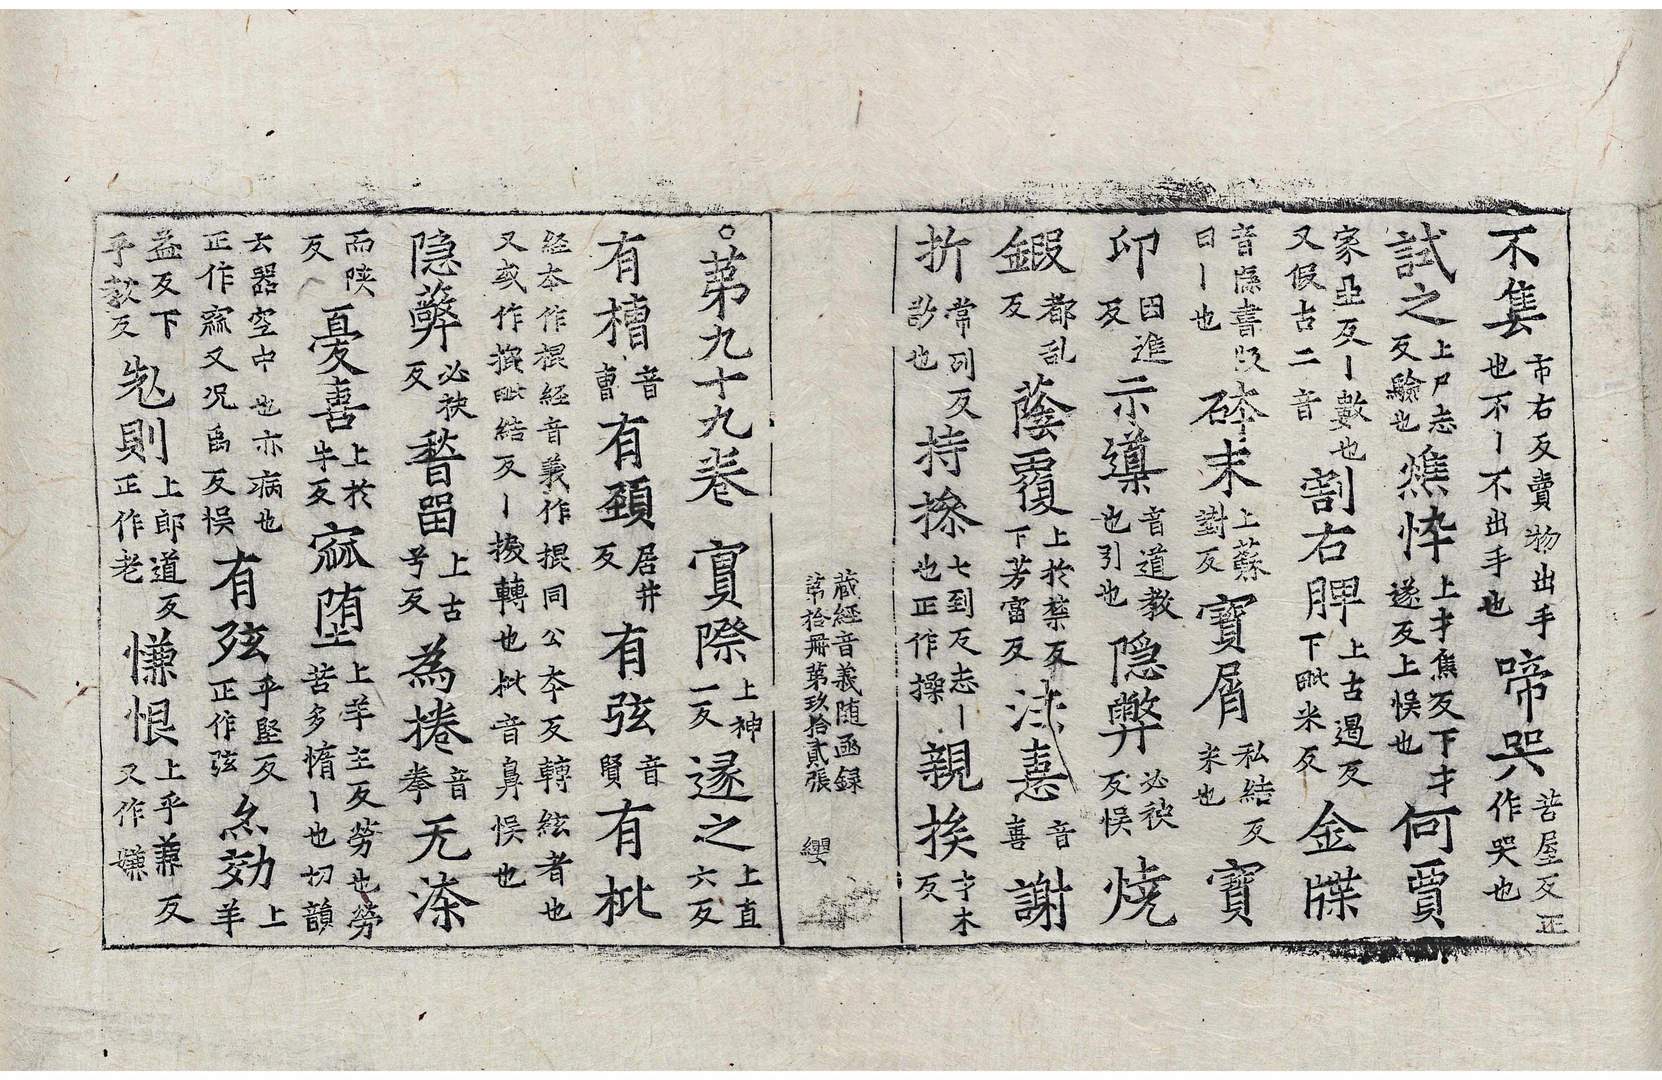 不隻市右反賣物出手也不丨不出手也啼哭苦屋反正作哭也
試之上尸志反驗也燋忰上才焦反下才遂反上悮也何賈
家亞反丨數也又假古二音割右胛上古遏反下毗米反金牒
音牒書版曰丨也碎末上蘇對反寶屑私結反米也寶
印因進反示導音道教也引也隐弊必袂反悮燒
鍜都乱反蔭覆上於禁反下芳富反法憙音喜謝
折常列反㫁也持摻七到反志丨也正作操親挨才木反
藏經音義随函録
第拾冊第玖拾貳張 纓
○第九十九卷 實際上神一反遂之上直六反
有槽音曹有頚居井反有弦音賢有枇
経本作棍経音義作掍同公本反轉絃者也又或作撰毗結反丨捩轉也枇音鼻悮也
隐蘖必袂反㬱留上古兮反為捲音拳无漆
而陕反憂喜上於牛反窳堕上羊主反勞也勞苦多惰丨也切韻
云器空中也亦病也正作窳又况爲反悮有弦乎堅反正作弦𠅘効上羊
益反下乎教反𠒎則上郎道反正作老慊恨上乎兼反又作嫌